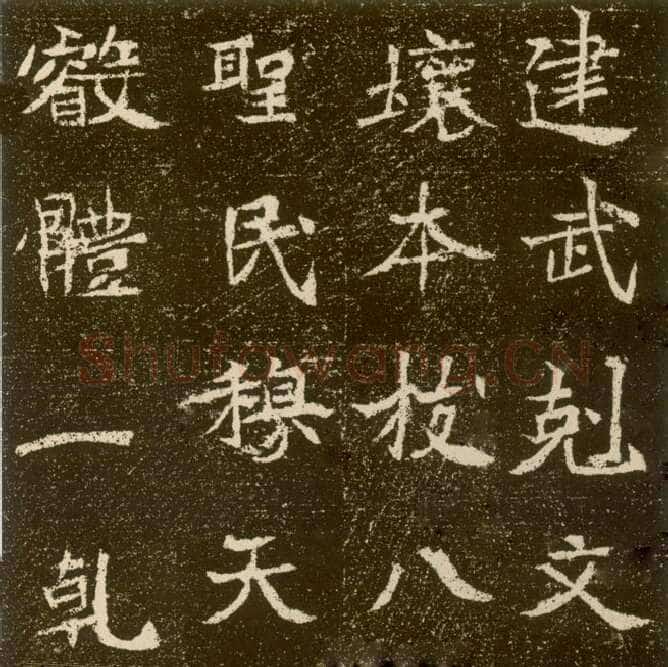 建武剋文
壤本枝八
聖民穆天
叡體一乹
Shufawang.CN